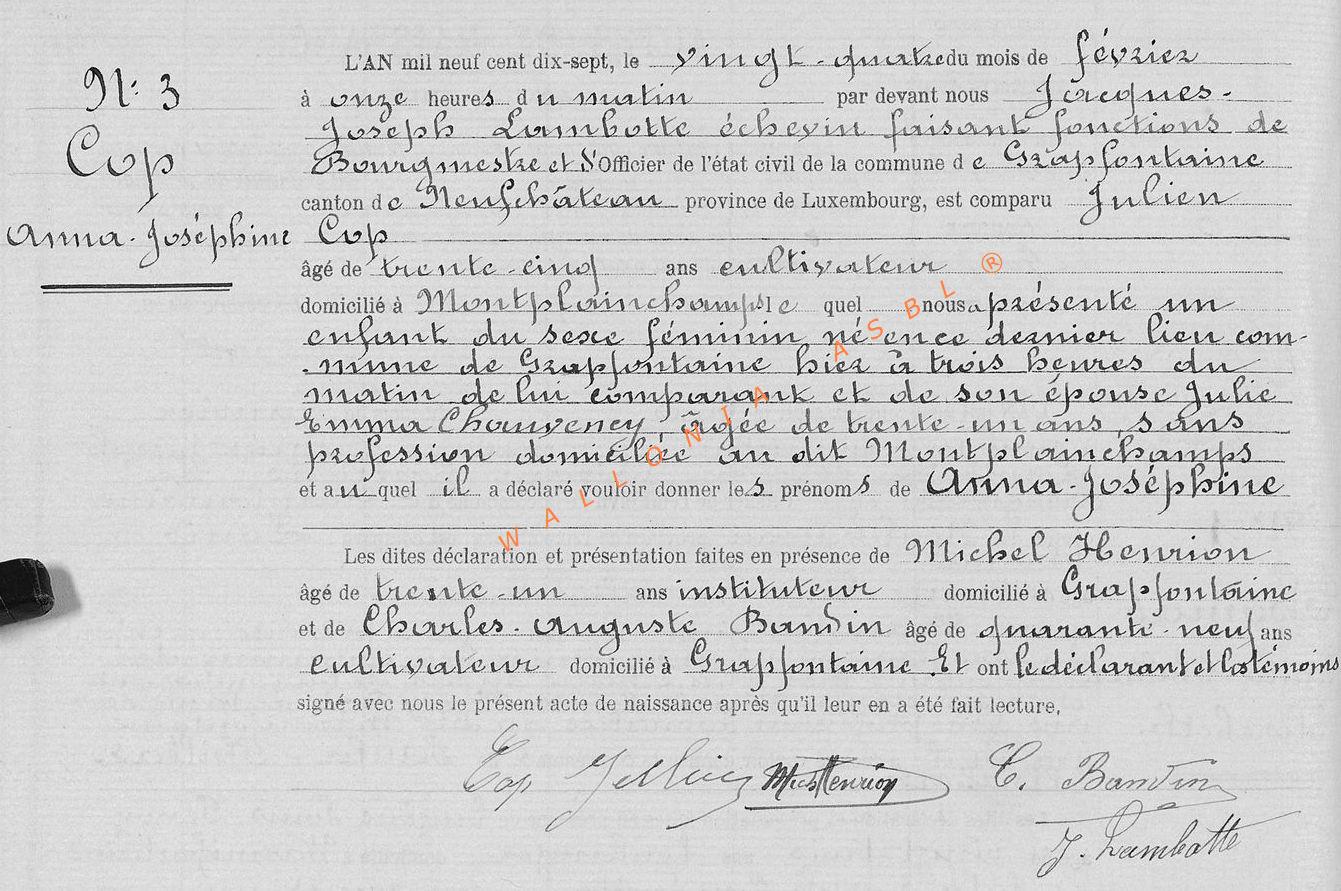 N° 3
Cop
Anna-Joséphine
L'AN mil neuf cent dix-sept, le vingt-quatre du mois de février
à onze heures du matin par devant nous Jacques-
Joseph Lambotte échevin faisant fonctions de
Bourgmestre et d'Officier de l'état civil de la commune de Grapfontaine
canton de Neufchâteau province de Luxembourg, est comparu Julien
Cop
âgé de trente-cinq ans cultivateur
domicilié à Montplainchamps le quel nous a présenté un
enfant du sexe féminin né en ce dernier lieu com-
-mune de Grapfontaine hier à trois heures du
matin de lui comparant et de son épouse Julie
Emma Chauvency, âgée de trente-un ans, sans
profession domiciliée au dit Montplainchamps
et au quel il a déclaré vouloir donner les prénoms de Anna-Joséphine
Les dites déclaration et présentation faites en présence de Michel Henrion
âgé de trente-un ans instituteur domicilié à Grapfontaine
et de Charles-Auguste Baudin âgé de quarante-neuf ans
cultivateur domicilié à Grapfontaine Et ont le déclarant et les témoins
signé avec nous le présent acte de naissance après qu'il leur en a été fait lecture.
Cop Mich Henrion C. Baudin
J. Lambotte
WALLONIA ASBL ®